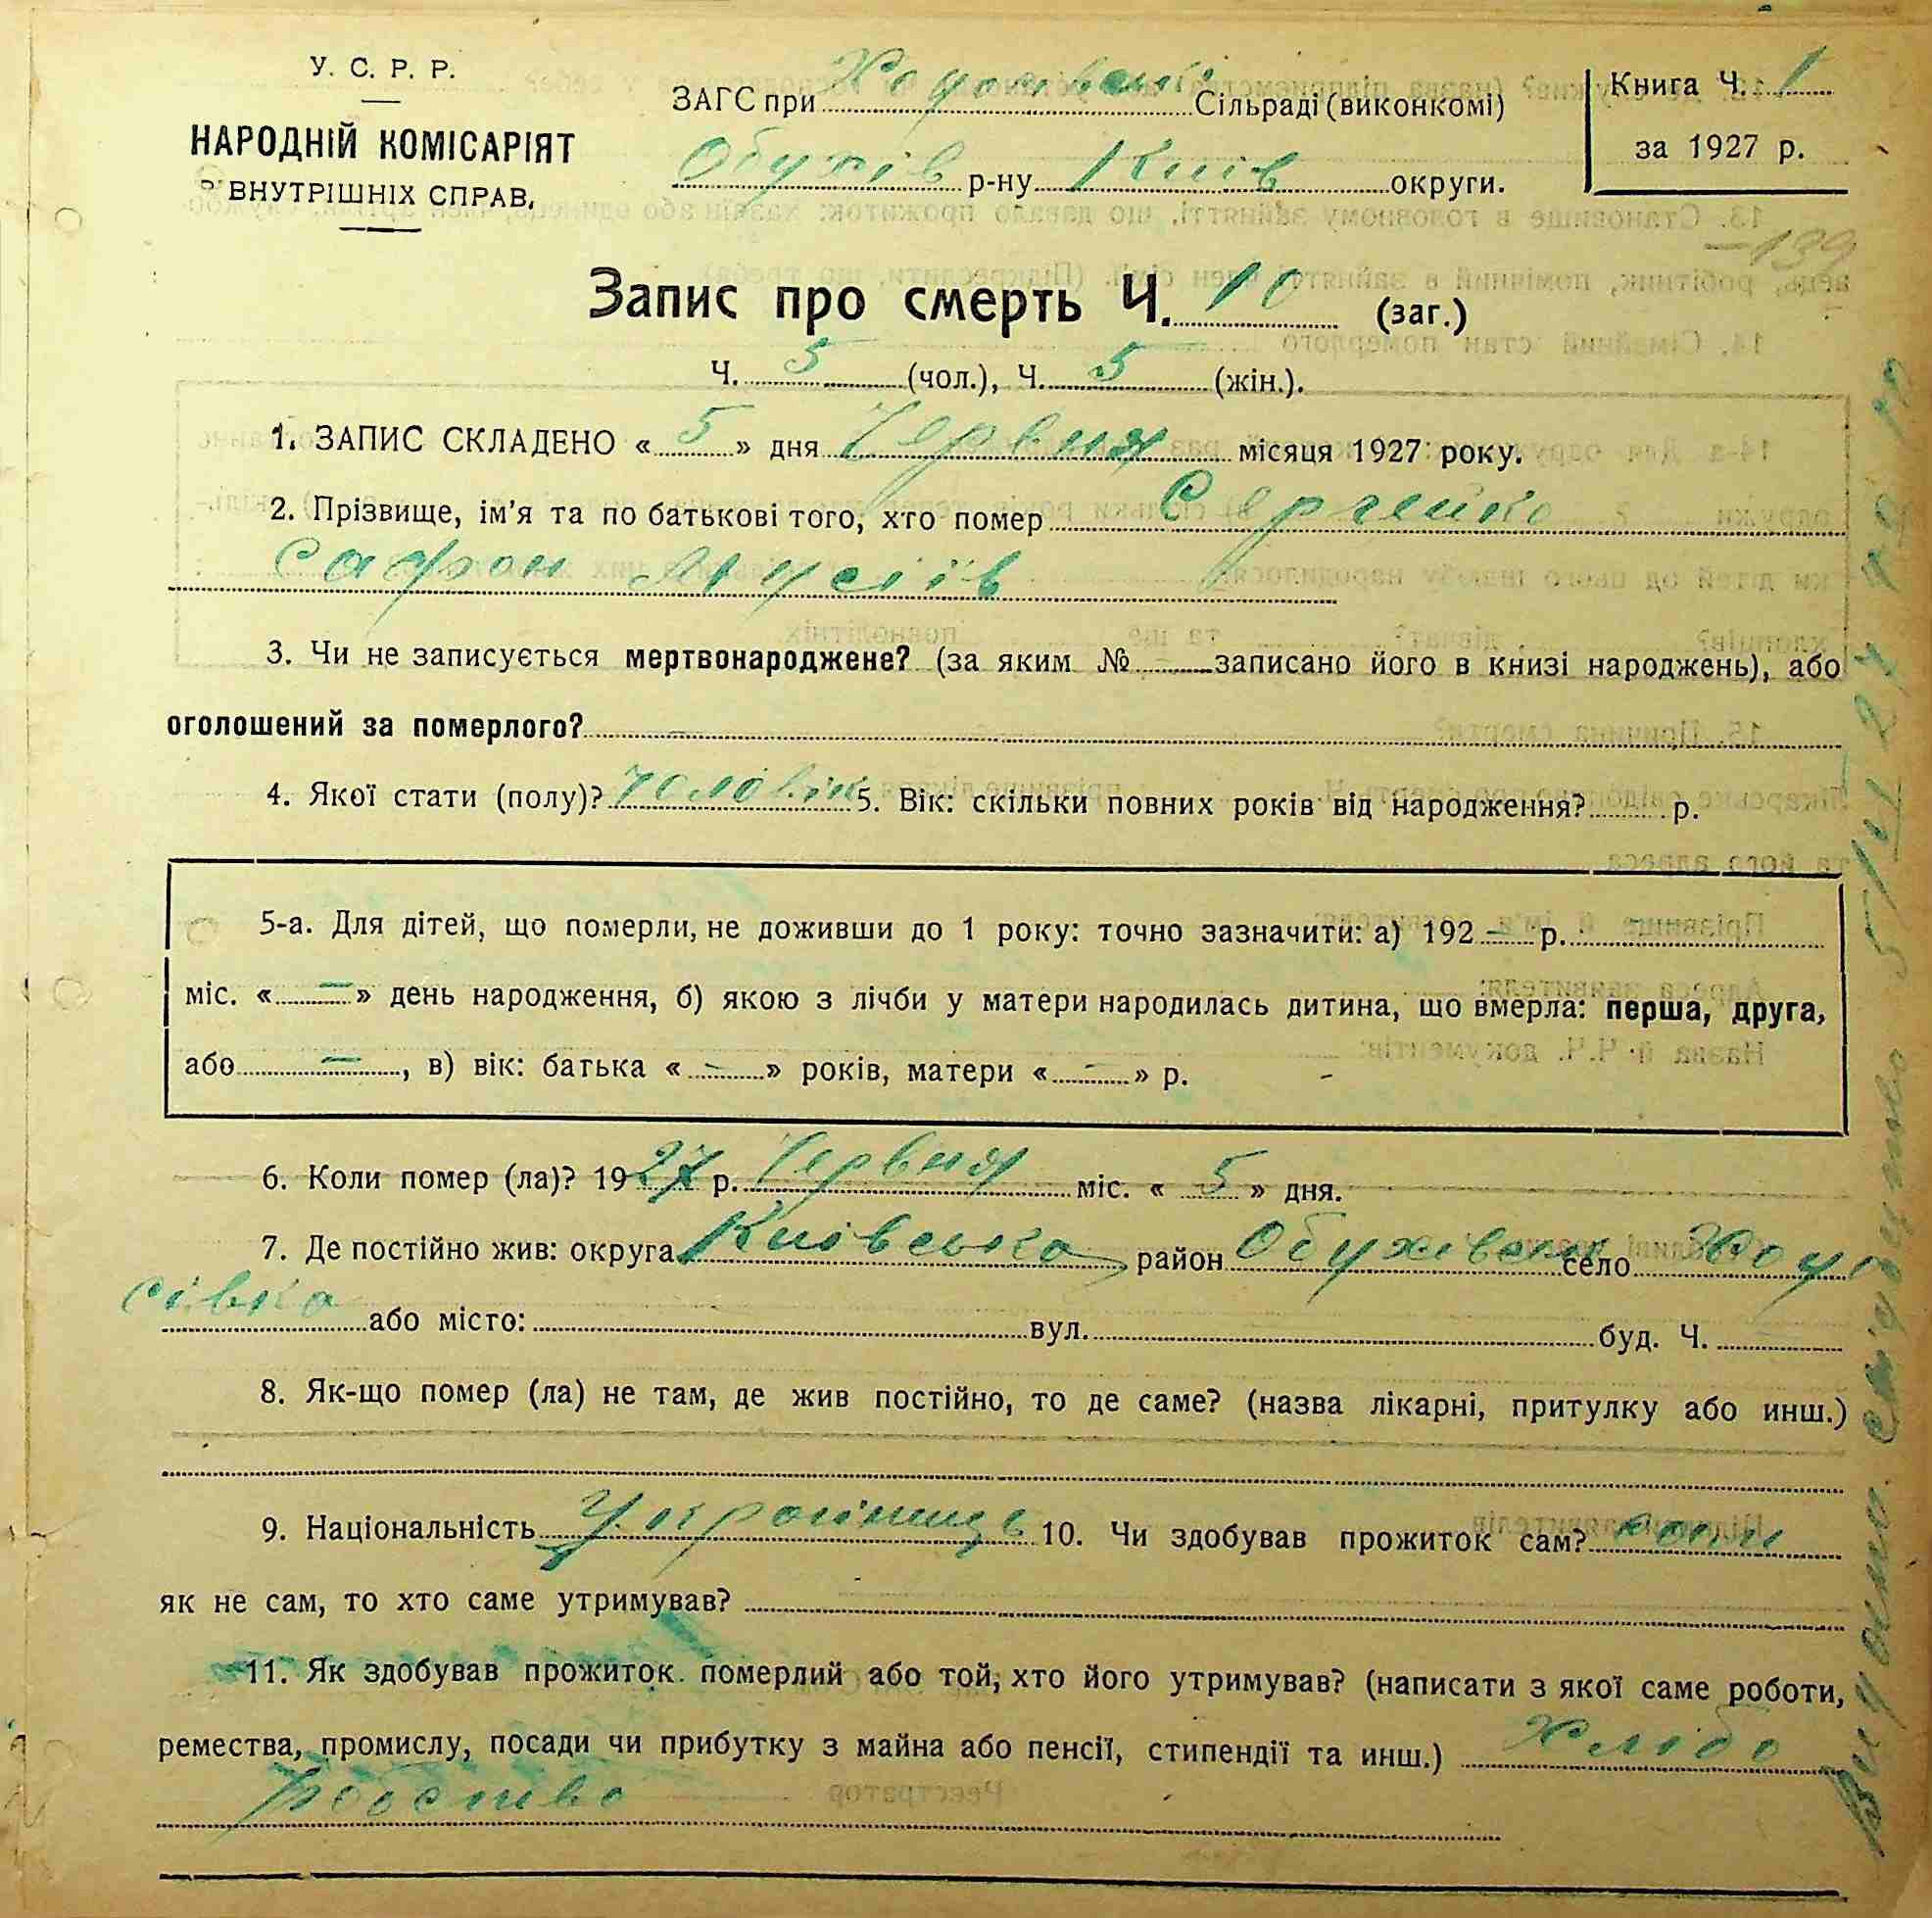 У. С. Р. Р.
НАРОДНІЙ КОМІСАРІЯТ
ВНУТРІШНІХ СПРАВ.
ЗАГС при Сільраді (виконкомі)
Обухів р-ну Київ округи.
Книга Ч. 1
за 1927 р.
139
Запис про смерть Ч. 10 (заг.)
Ч. 5 (чол.), Ч. 5 (жін.).
1. ЗАПИС СКЛАДЕНО « 5 » дня Червня місяця 1927 року.
2. Прізвище, ім'я та по батькові того, хто помер Сергейко
Сафрон Мусіїв
3. Чи не записується мертвонароджене? (за яким № — записано його в книзі народжень), або
оголошений за померлого?
4. Якої стати (полу)? чоловік 5. Вік: скільки повних років від народження? р.
5-а. Для дітей, що померли, не доживши до 1 року: точно зазначити: а) 192 — р.
міс. « — » день народження, б) якою з лічби у матери народилась дитина, що вмерла: перша, друга,
або — , в) вік: батька « — » років, матери « — » р.
6. Коли помер (ла)? 1927 р. Червня міс. « 5 » дня.
7. Де постійно жив: округа Київська район Обухівськ село
сівка або місто: вул. буд. Ч.
8. Як-що помер (ла) не там, де жив постійно, то де саме? (назва лікарні, притулку або инш.)
9. Національність Українець 10. Чи здобував прожиток сам?
як не сам, то хто саме утримував?
11. Як здобував прожиток померлий або той, хто його утримував? (написати з якої саме роботи,
ремества, промислу, посади чи прибутку з майна або пенсії, стипендії та инш.) Хлібо
робство